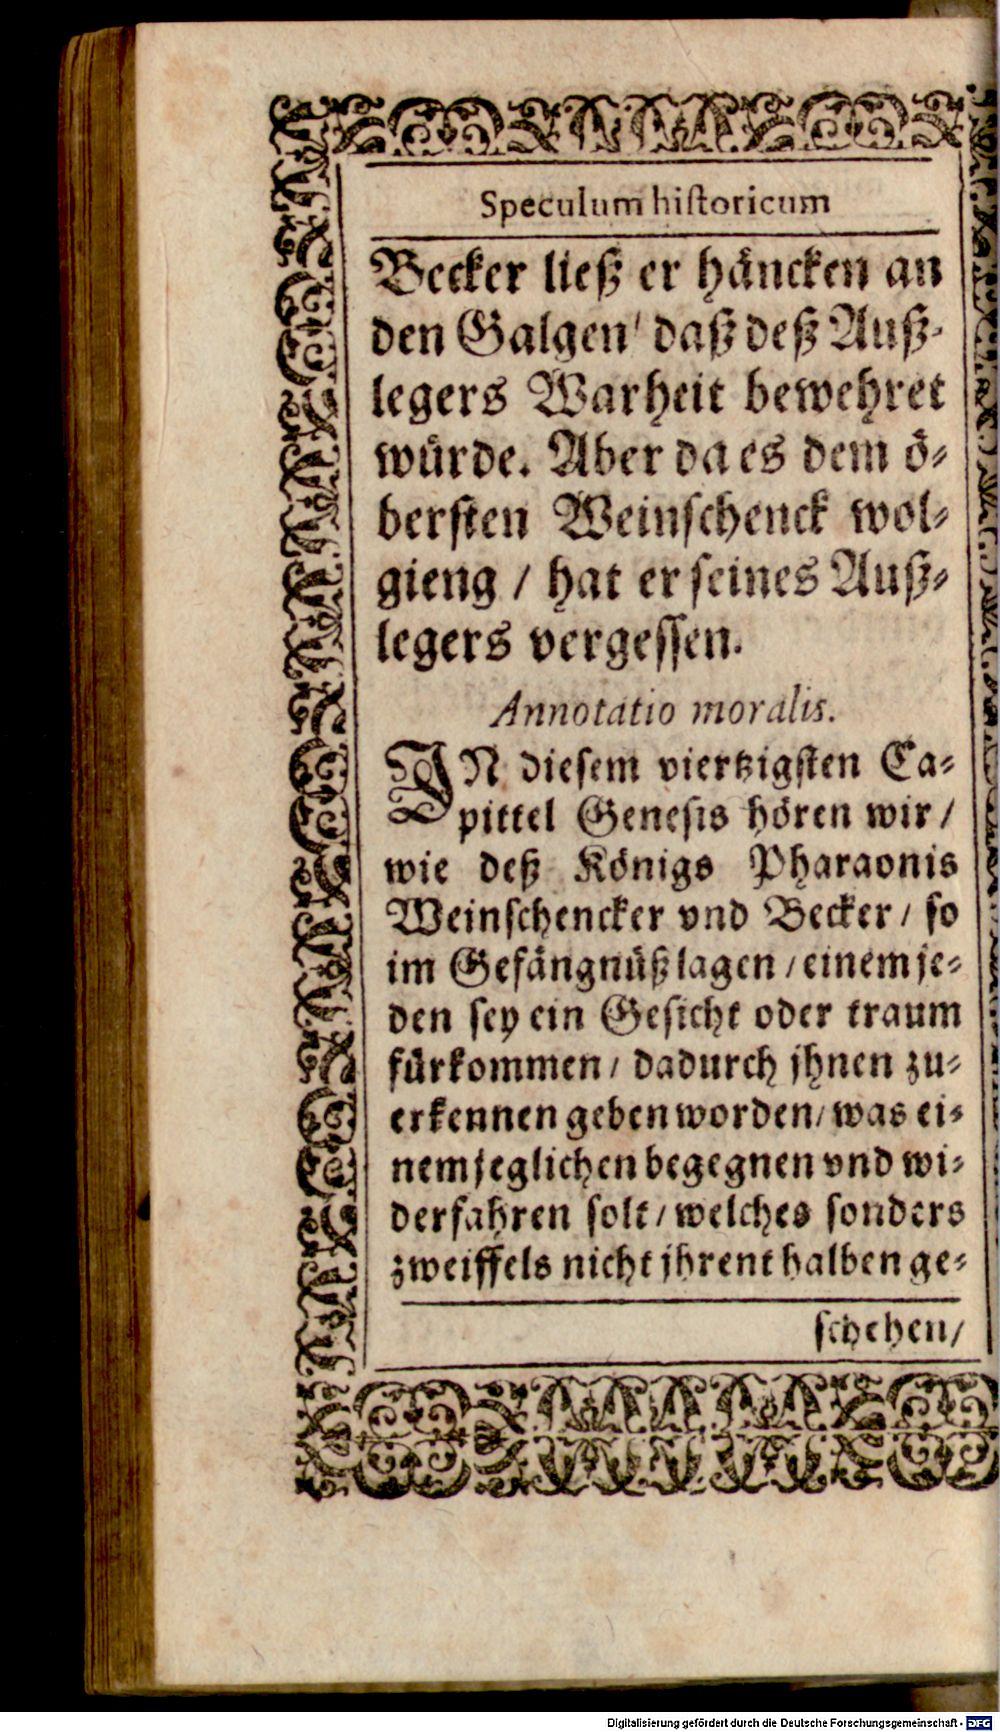 Speculum hiſtoricum
Becker ließ er häncken an
den Galgen / daß deß Auß-
legers Warheit bewehret
würde. Aber da es dem ö-
berſten Weinſchenck wol-
gieng / hat er ſeines Auß-
legers vergeſſen.
Annotatio moralis.
IN dieſem viertzigſten Ca-
pittel Geneſis hören wir /
wie deß Königs Pharaonis
Weinſchencker vnd Becker / ſo
im Gefängnüß lagen / einem je-
den ſey ein Geſicht oder traum
fürkommen / dadurch jhnen zu-
erkennen geben worden / was ei-
nem jeglichen begegnen vnd wi-
derfahren ſolt / welches ſonders
zweiffels nicht jhrent halben ge-
ſchehen /
Digitalisierung gefördert durch die Deutsche Forschungsgemeinschaft - DFG